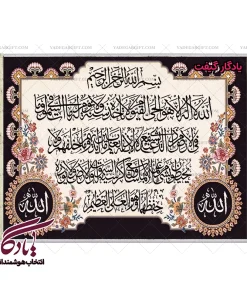 یادگار گیفت
بسم الله الرحمن الرحيم
الله لا اله الا هو الحي القيوم لا تأخذه سنة ولا نوم له ما في السموات وما
في الارض من ذا الذي يشفع عنده الا باذنه يعلم ما بين ايديهم وما خلفهم ولا
يحيطون بشيء من علمه الا بما شاء وسع كرسيه السموات والارض ولا يؤده
حفظهما وهو العلي العظيم
الله
الله
یادگار
انتخاب هوشمندانه